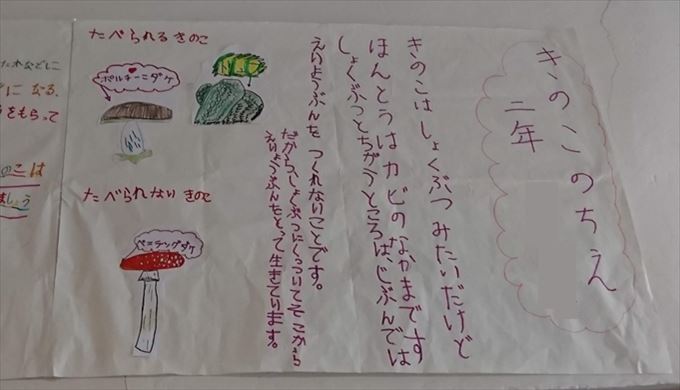 きのこのちえ
二年
きのこは しょくぶつ みたいだけど
ほんとうは カビのなかまです
しょくぶつとちがうところは、じぶんでは
えいようぶんを つくれないことです。
だから、しょくぶつにくっついてそこから
えいようぶんをとって生きています。
たべられるきのこ
ポルチーニダケ
たべられない きのこ
ベニテングダケ
になる。
をもらって
のこは
ましょう